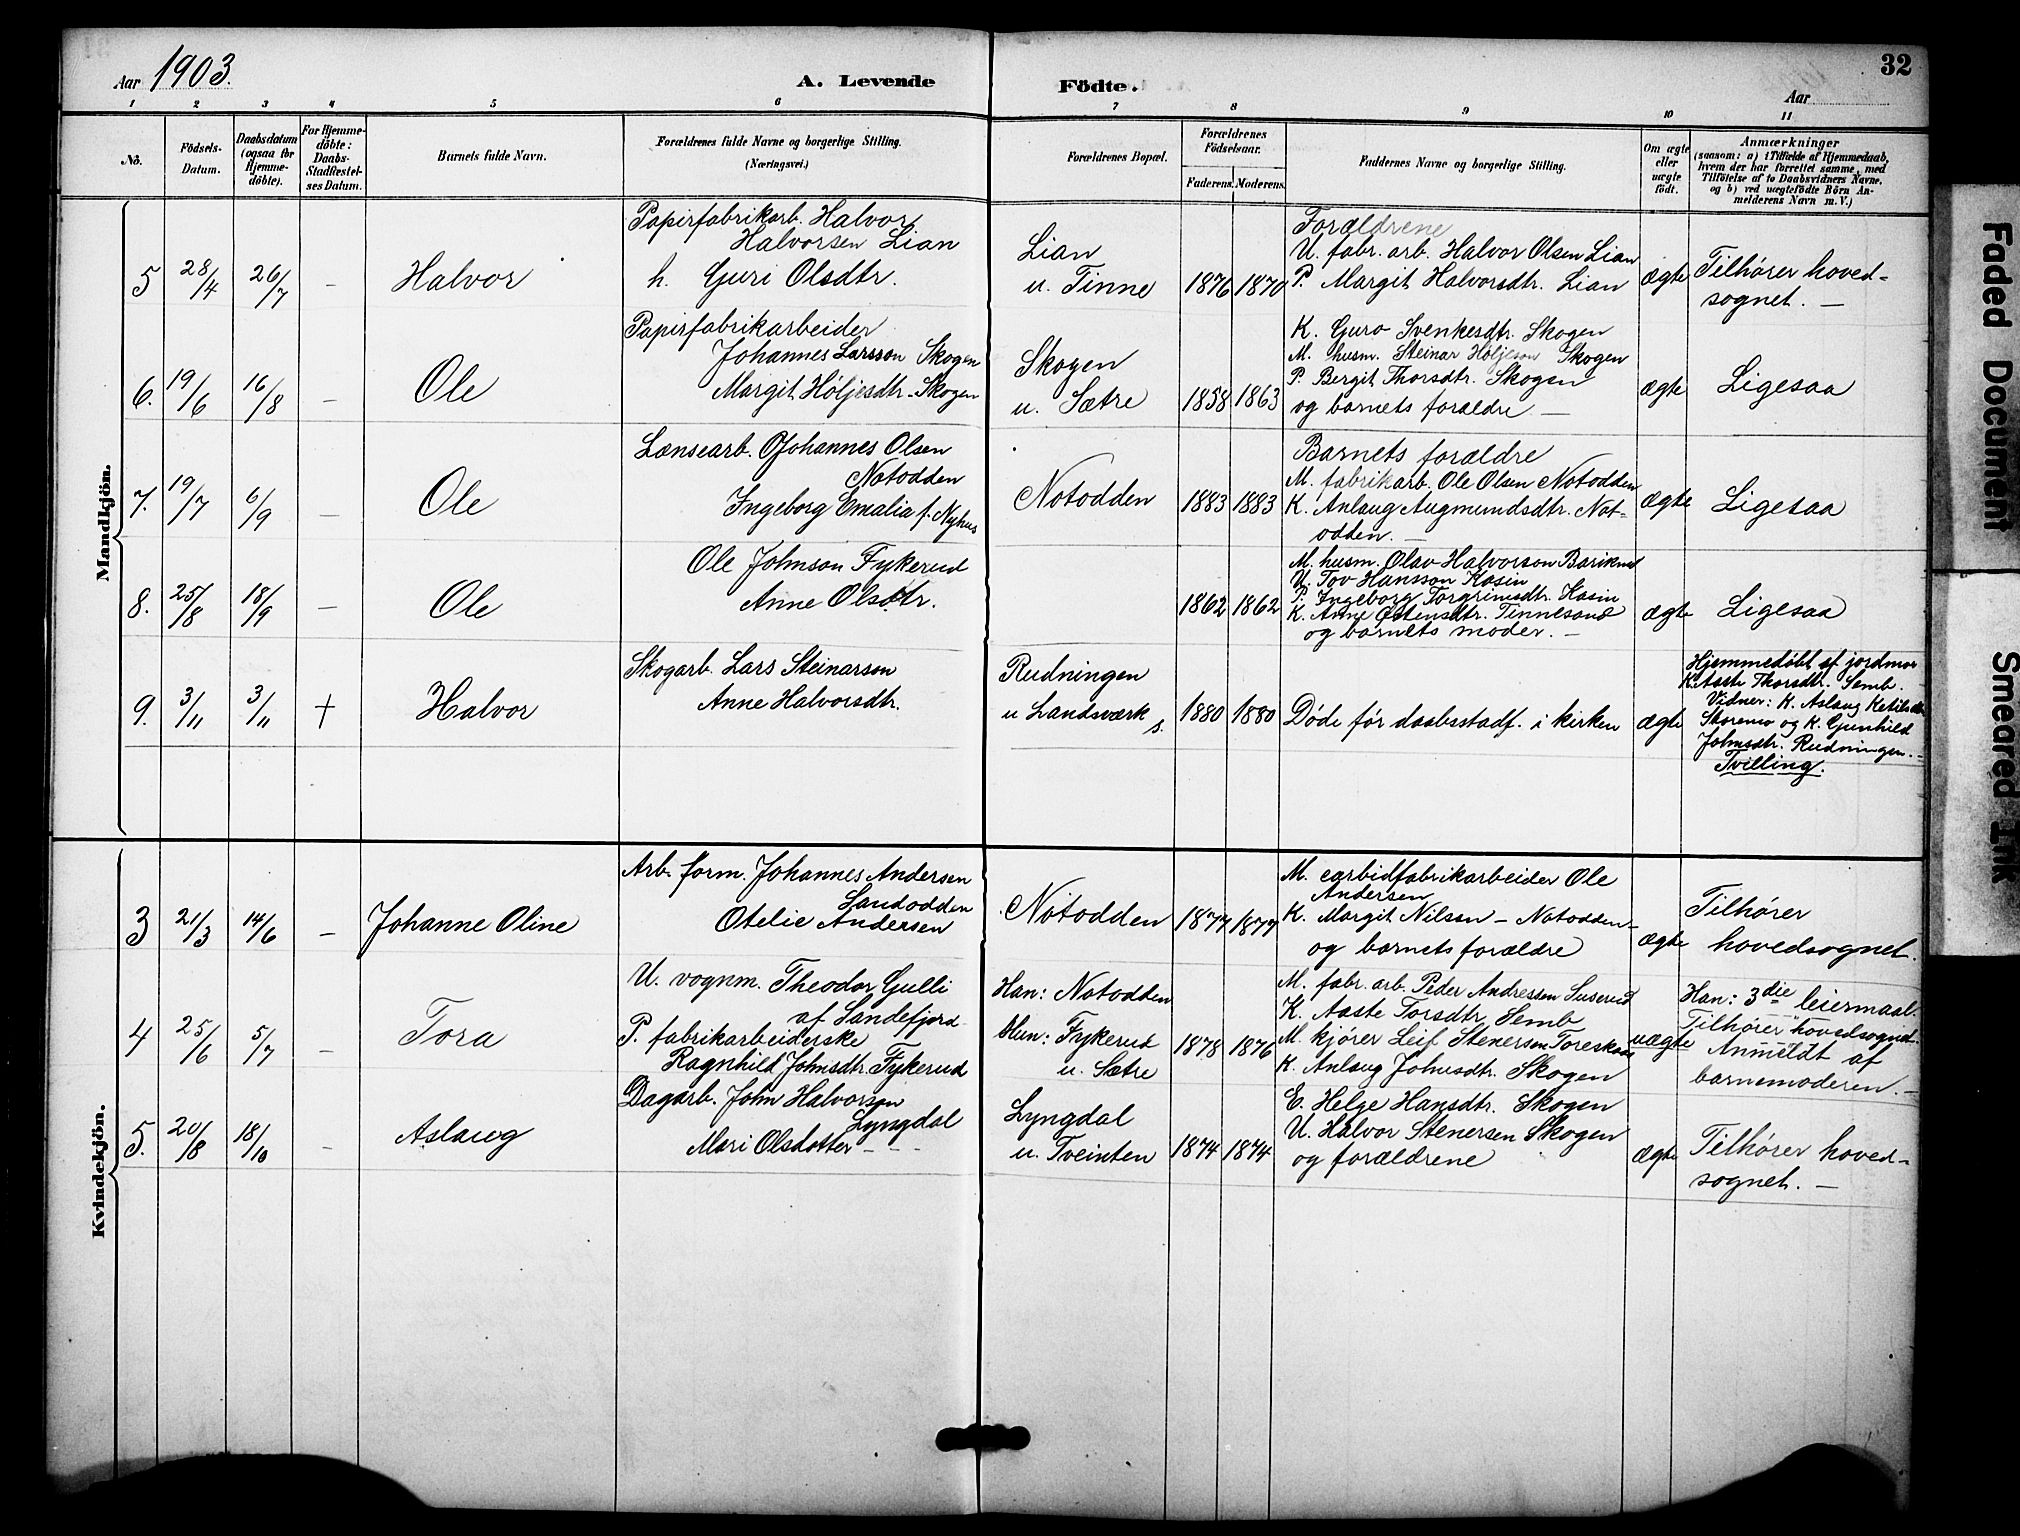 Aar 1903.
A. Levende
Födte.
Aar
32
1 2 3 4 5 6 7 8 9 10 11
No.
Födsels-
Datum.
Daabsdatum
(ogsaa for
Hjemme-
döbte).
For Hjemme-
döbte:
Daabs-
Stadfæstel-
ses Datum.
Barnets fulde Navn.
Forældrenes fulde Navne og borgerlige Stilling.
(Næringsvei.)
Forældrenes Bopæl.
Forældrenes
Födselsaar.
Faderens. Moderens.
Faddernes Navne og borgerlige Stilling.
Om ægte
eller
uægte
födt.
Anmærkninger
(saasom: a) i Tilfælde af Hjemmedaab,
hvem der har forrettet samme, med
Tilföielse af to Daabsvidners Navne,
og b) ved uægtefödte Börn An-
melderens Navn m. V.)
Mandkjön.
5 28/4 26/7 – Halvor
Papirfabrikarb. Halvor
Halvorsen Lian
h. Guri Olsdtr.
Lian
u. Tinne
1876 1870
Forældrene
U. fabr. arb. Halvor Olsen Lian
P. Margit Halvorsdtr. Lian
ægte
Tilhører hoved-
sognet. –
6. 19/6 16/8 – Ole
Papirfabrikarbeider
Johannes Larsson Skogen
Margit Höljesdtr. Skogen
Skogen
u. Sætre
1858 1863
K. Guro Svenkesdtr. Skogen
M. husm. Steinar Höljeson Skogen
P. Bergit Thorsdtr. Skogen
og barnets forældre –
ægte
Ligesaa
7. 19/7 6/9 – Ole
Lænsearb. Johannes Olsen
Notodden
Ingeborg Emalia f. Nyhus
Notodden
1883 1883
Barnets forældre
M. fabrikarb. Ole Olsen Notodden
K. Anlaug Augmundsdtr. Not-
odden. –
ægte
Ligesaa
8. 25/8 18/9 – Ole
Ole Johnson Fykerud
Anne Olsdtr.
1862 1862
M. husm. Olav Halvorson
U. Tov Hansson Hasin
P. Ingeborg Torgrimsdtr. Hasin
K. Anne Østensdtr. Tinnesand
og barnets moder. –
ægte
Ligesaa
9. 3/11 3/11 † Halvor
Skogarb. Lars Steinarson
Anne Halvorsdtr.
Rudningen
u Landsværk
s.
1880 1880
Døde før daabsstadf. i kirken
ægte
Hjemmedöbt af jordmor
K. Aaste Thorsdtr. Semb.
Vidner: K. Aslaug Ketilsdtr
Skoremo og K. Gunhild
Johnsdtr. Rudningen. –
Tvilling.
Kvindekjön.
3 21/3 14/6 – Johanne Oline
Arb. form. Johannes Andersen
Sandodden
Otelie Andersen
Notodden
1877 1877
M. carbidfabrikarbeider Ole
Andersen
K. Margit Nilsen – Notodden –
og barnets forældre
ægte
Tilhører
hovedsognet.
4 25/6 5/7 – Tora
U. vognm. Theodor Gulli
af Sandefjord
P. fabrikarbeiderske
Ragnhild Johnsdtr. Fykerud
Han: Notodden
Hun: Fykerud
u. Sætre
1878 1876
M. fabr. arb. Peder Andressen Suserud
K. Aaste Torsdtr. Semb
M. kjører Leif Stenersen
K. Anlaug Johnsdtr. Skogen
uægte
Han: 3die leiermaal.
Tilhører hovedsognet.
Anmeldt af
barnemoderen. –
5. 20/8 18/10 – Aslaug
Dagarb. John Halvorsen
Lyngdal
Mari Olsdotter – – –
Lyngdal
u. Tveinten
1874 1874
E. Helge Hansdtr. Skogen
U. Halvor Stenersen Skogen
og forældrene
ægte
Tilhører hoved-
sognet. –
Faded Document
Smeared Ink